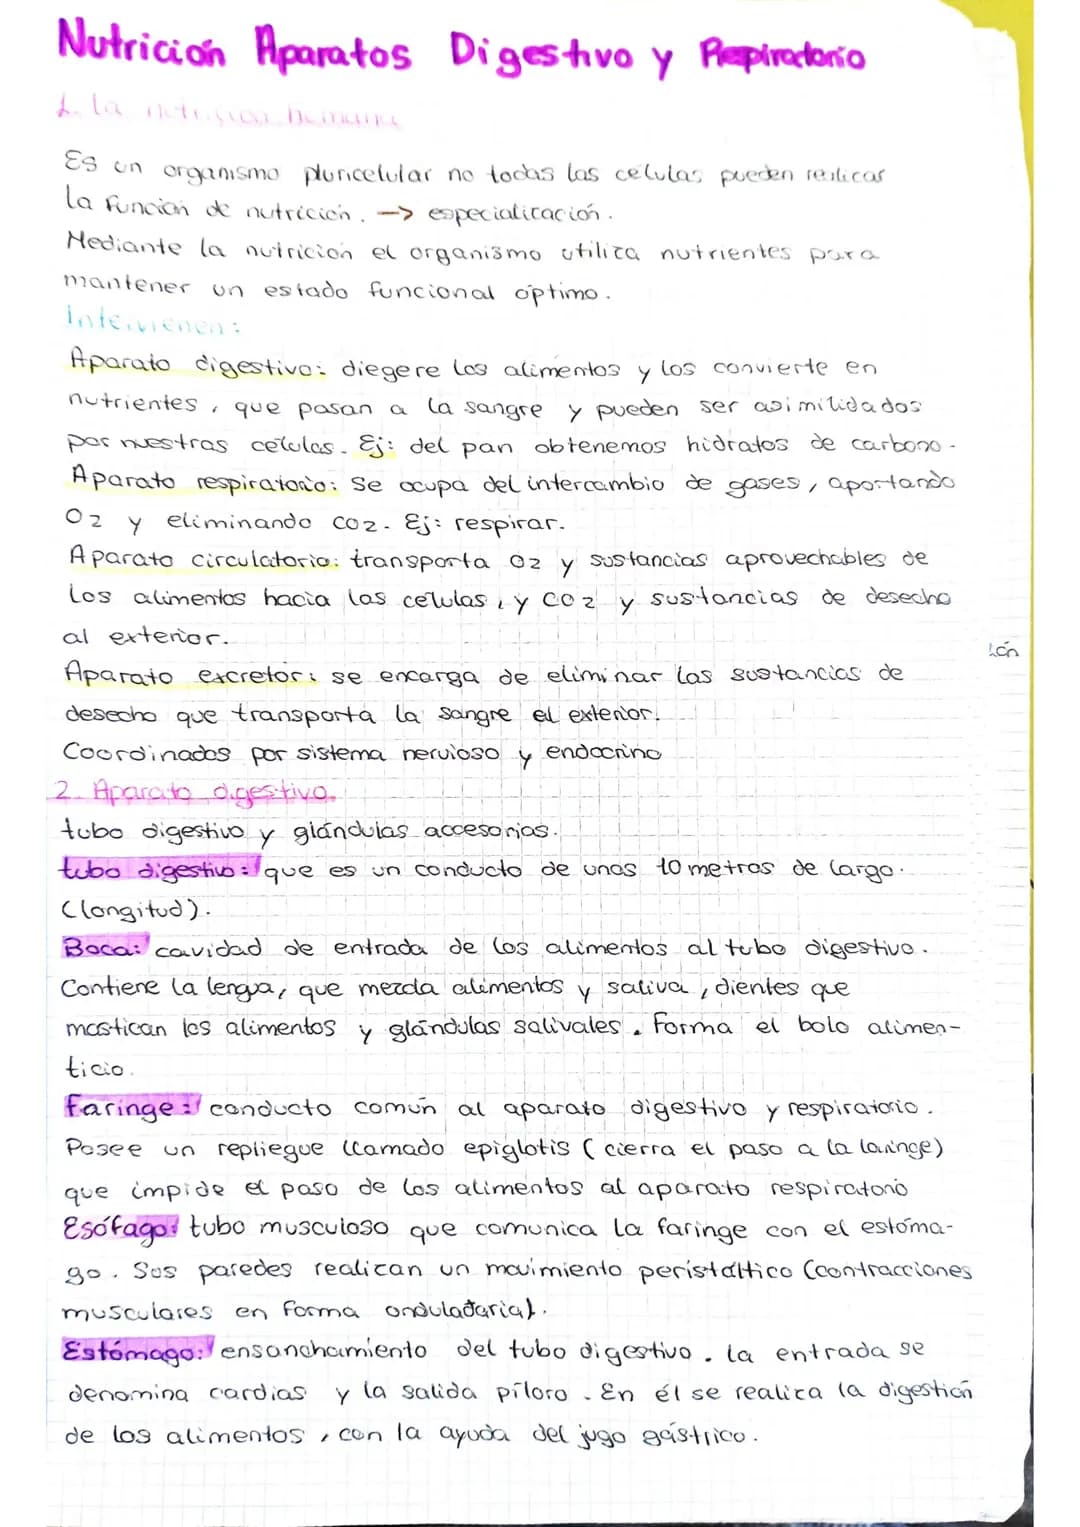 Nutrición Aparatos Digestivo y Respiratorio
1. La nutrición humana
Es un organismo pluricelular no todas las células pueden realicar
la función de nutrición. -> especialización.
Mediante la nutrición el organismo utiliza nutrientes para
mantener un estado funcional óptimo.
Intervienen:
Aparato digestivo: diegere los alimentos y los convierte en
nutrientes, que pasan a la sangre y pueden ser asimilidados
por nuestras células. Ej: del pan obtenemos hidratos de carbono.
Aparato respiratorio: Se ocupa del intercambio de gases, aportando
O2 y eliminando CO2. Ej: respirar.
Aparato circulatorio: transporta O2 y sustancias aprovechables de
los alimentos hacia las células, y CO2 y sustancias de desecho
al exterior.
ión
Aparato excretor: se encarga de eliminar las sustancias de
desecho que transporta la sangre el exterior.
Coordinados por sistema nervioso y endocrino
2. Aparato digestivo.
tubo digestivo y glándulas accesorias.
tubo digestivo: que es un conducto de unos 10 metros de largo.
(longitud).
Boca: cavidad de entrada de los alimentos al tubo digestivo.
Contiene la lengua, que mezcla alimentos y saliva, dientes que
mastican los alimentos y glándulas salivales. Forma el bolo alimen-
ticio.
Faringe: conducto común al aparato digestivo y respiratorio.
Posee un repliegue llamado epiglotis (cierra el paso a la laringe)
que impide el paso de los alimentos al aparato respiratorio
Esófago: tubo musculoso que comunica la faringe con el estóma-
go. Sus paredes realizan un movimiento peristáltico (contracciones
musculares en forma onduladaria).
Estómago: ensanchamiento del tubo digestivo. la entrada se
denomina cardias y la salida píloro. En él se realiza la digestión
de los alimentos, con la ayuda del jugo gástrico.